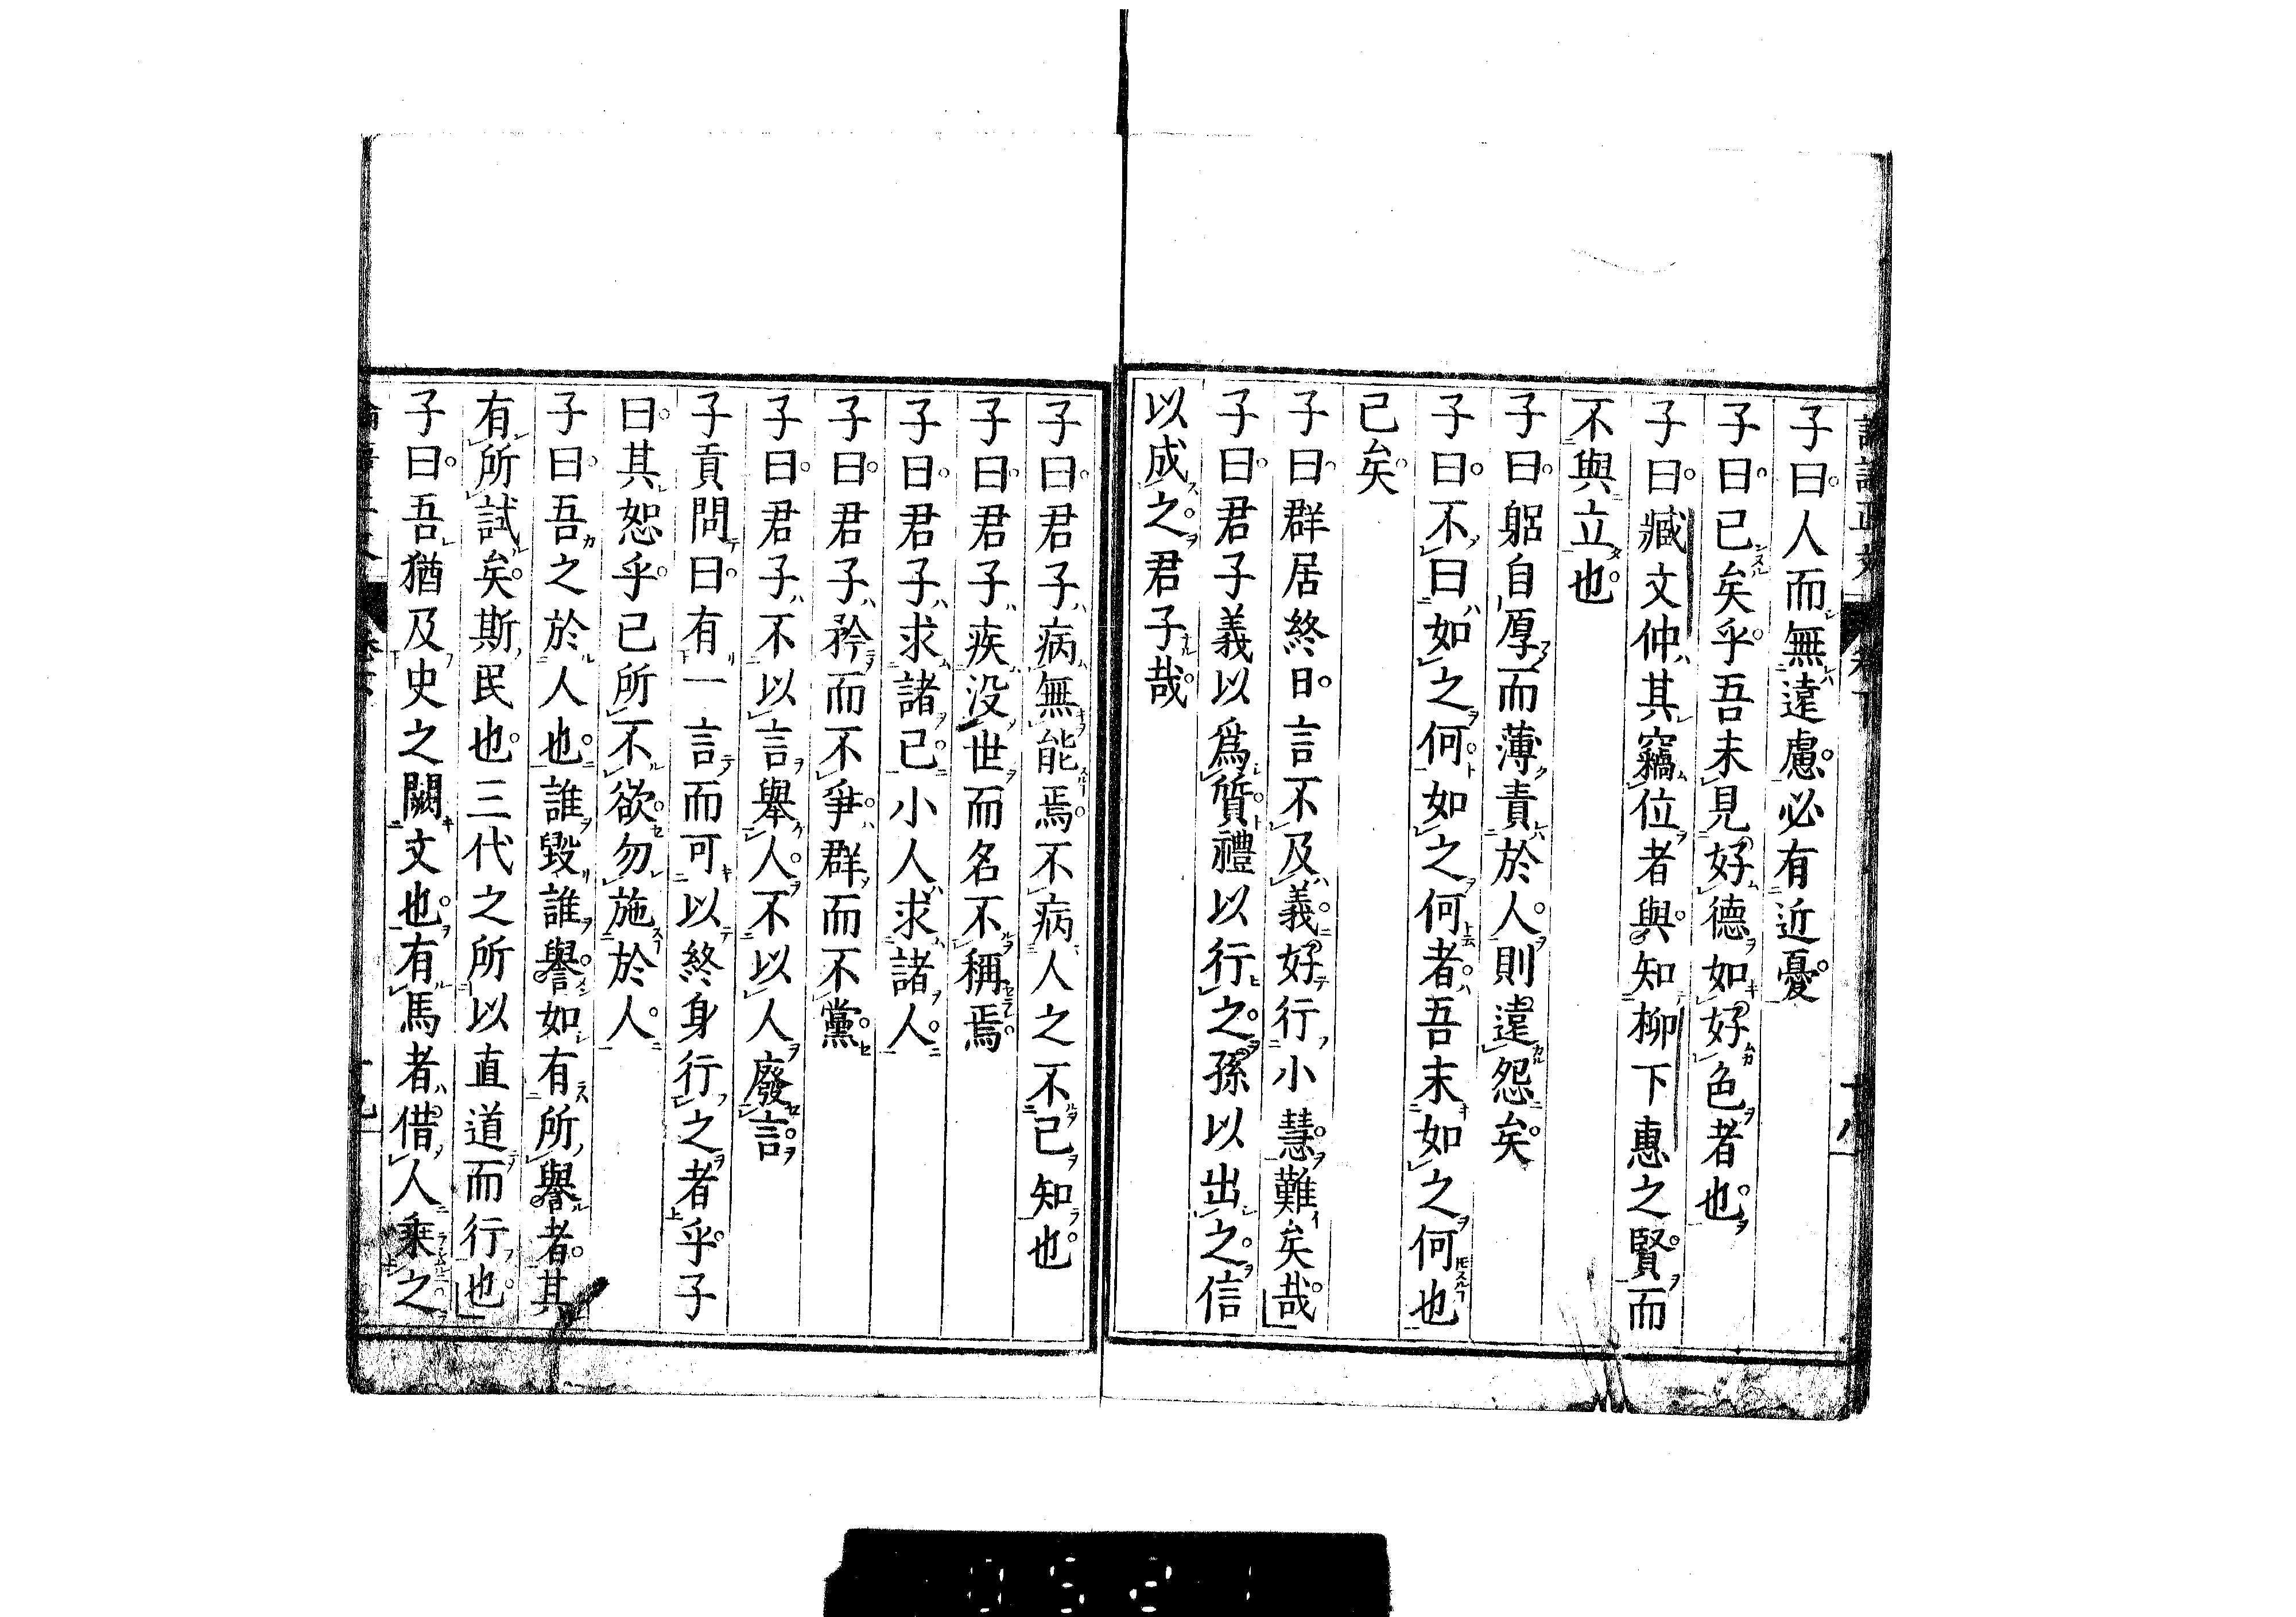 子曰人而無遠慮必有近憂
子曰已矣乎吾未見好德如好色者也
子曰臧文仲其竊位者與知柳下惠之賢而
不與立也
子曰躬自厚而薄責於人則遠怨矣
子曰不曰如之何如之何者吾末如之何也
已矣
子曰群居終日言不及義好行小慧難矣哉
子曰君子義以爲質禮以行之孫以出之信
以成之君子哉
子曰君子病無能焉不病人之不已知也
子曰君子疾没世而名不稱焉
子曰君子求諸已小人求諸人
子曰君子矜而不爭群而不黨
子曰君子不以言舉人不以人廢言
子貢問曰有一言而可以終身行之者乎子
曰其恕乎已所不欲勿施於人
子曰吾之於人也誰毀誰譽如有所譽者其
有所試矣斯民也三代之所以直道而行也
子曰吾猶及史之闕文也有馬者借人乗之
0521